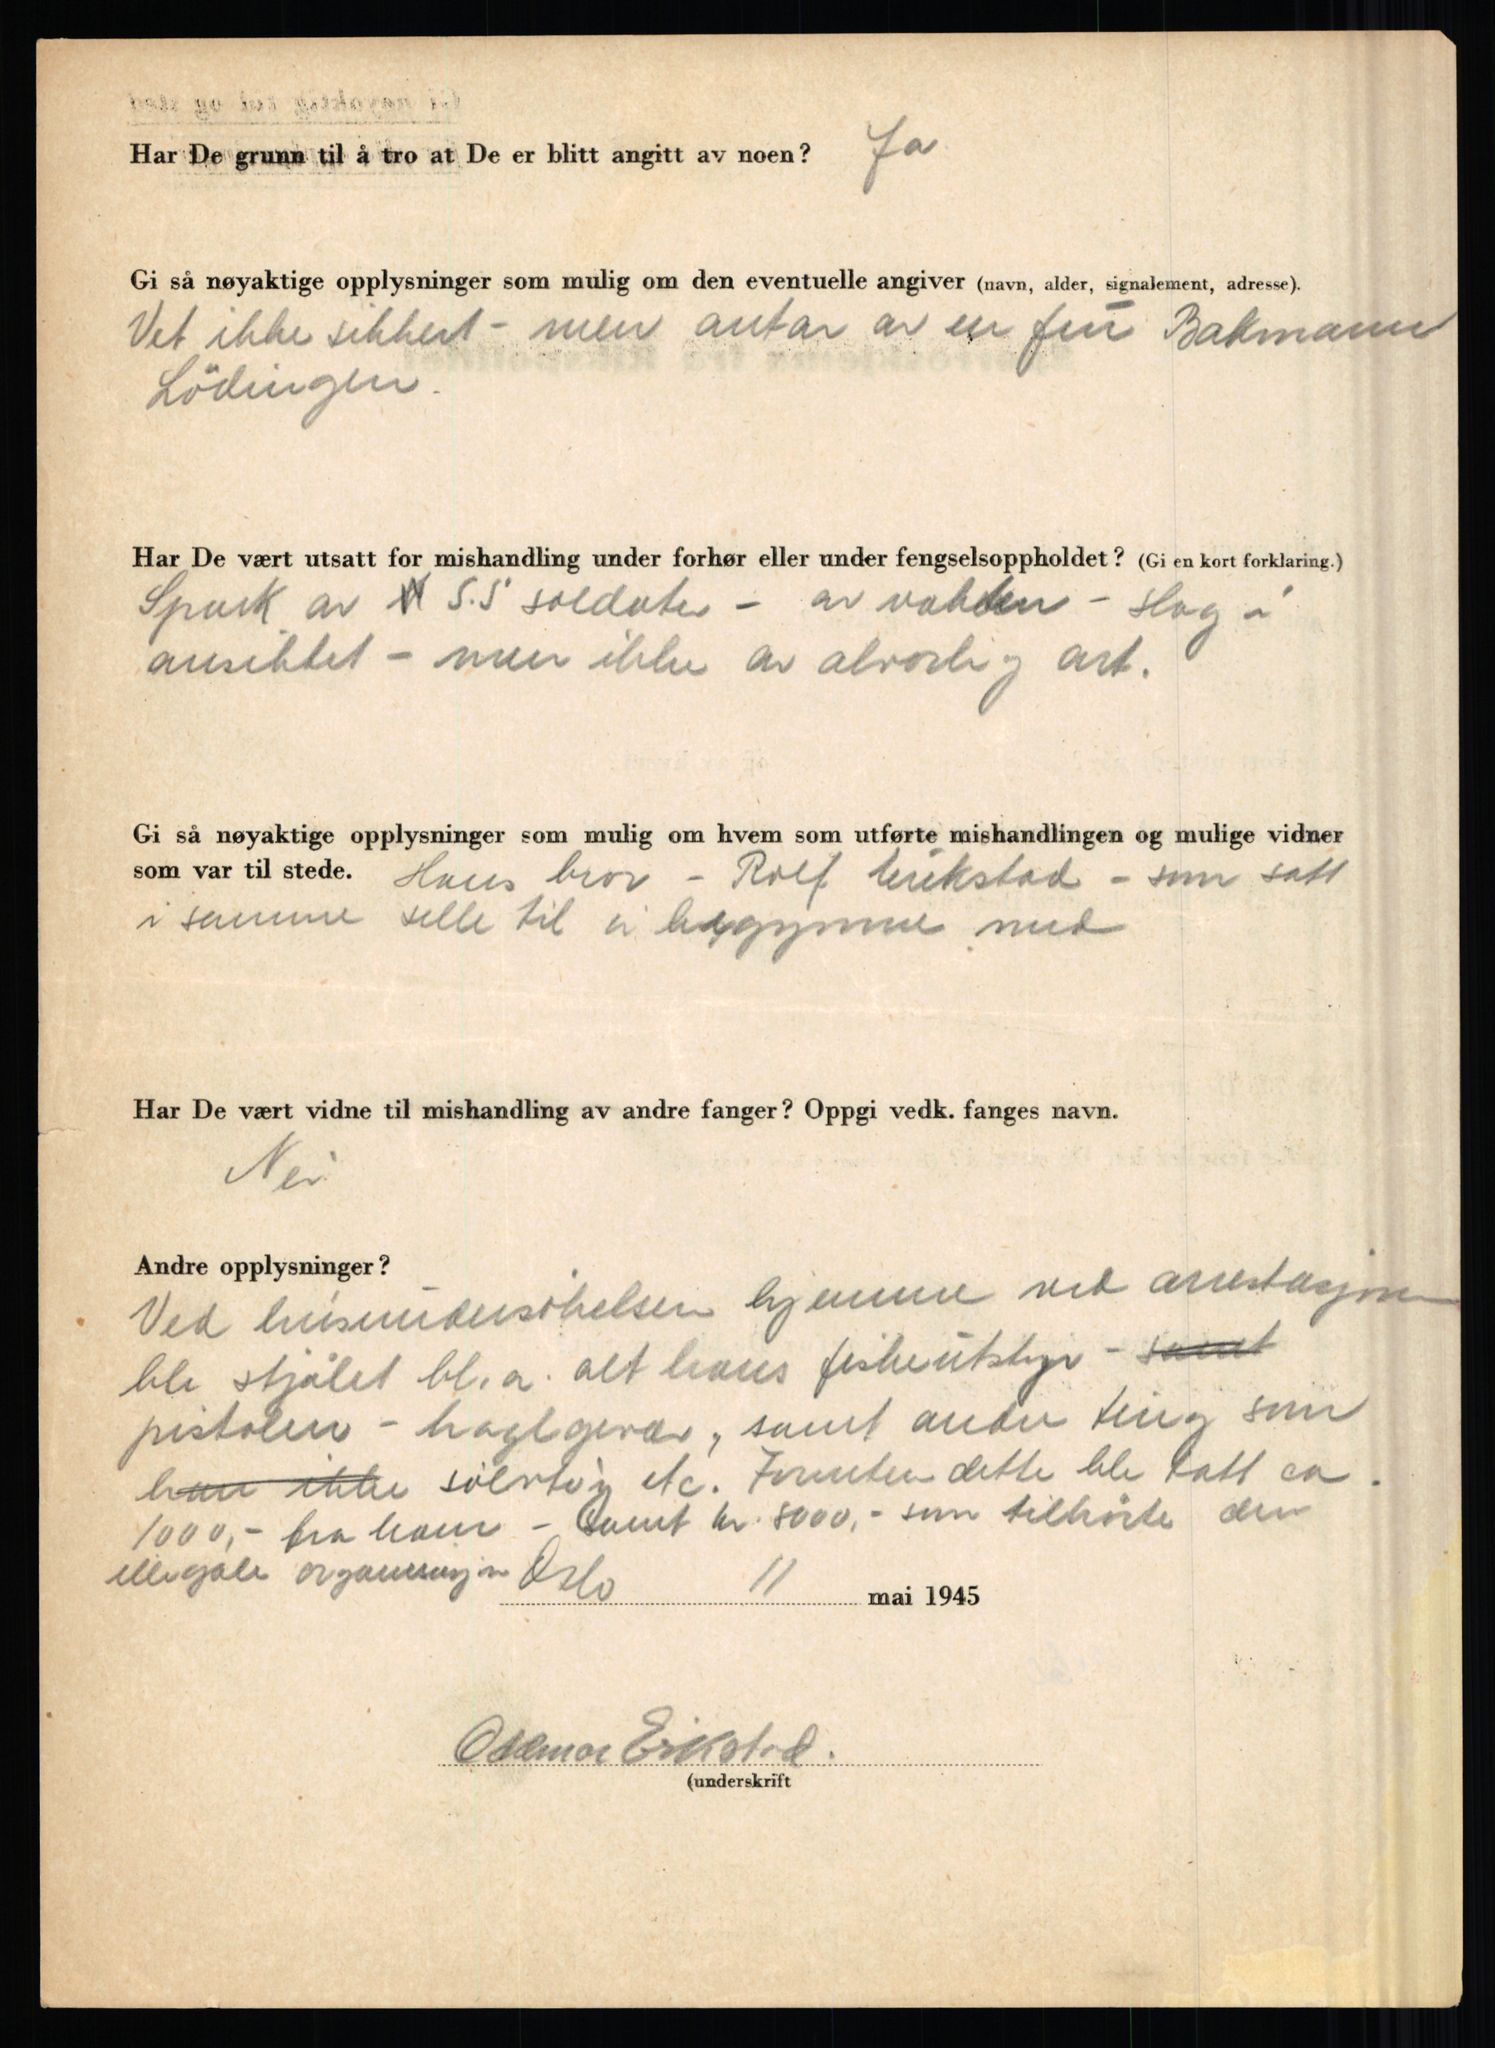 Har De grunn til å tro at De er blitt angitt av noen? Ja
Gi så nøyaktige opplysninger som mulig om den eventuelle angiver (navn, alder, signalement, adresse).
Vet ikke sikkert - men antar av en frü Bakmann
Lödingen.
Har De vært utsatt for mishandling under forhør eller under fengselsoppholdet? (Gi en kort forklaring.)
Spark av S.S soldater - av vakten - slag i
ansiktet - men ikke av alvorlig art.
Gi så nøyaktige opplysninger som mulig om hvem som utførte mishandlingen og mulige vidner
som var til stede. Hans bror - Rolf Erikstad - som satt
i samme selle til å begynne med
Har De vært vidne til mishandling av andre fanger? Oppgi vedk. fanges navn.
Nei
Andre opplysninger?
Ved husundersökelsen hjemme ved arrestasjonen
ble stjålet bl.a. alt hans fiskeutstyr - samt
pistolen - haglgevær, samt andre ting som
han ikke sölvtöy etc. Foruten dette ble tatt ca.
1000,- fra ham - Samt kr. 8000,- som tilhörte den
illegale organisasjon
Oslo 11 mai 1945
Erikstad.
(underskrift